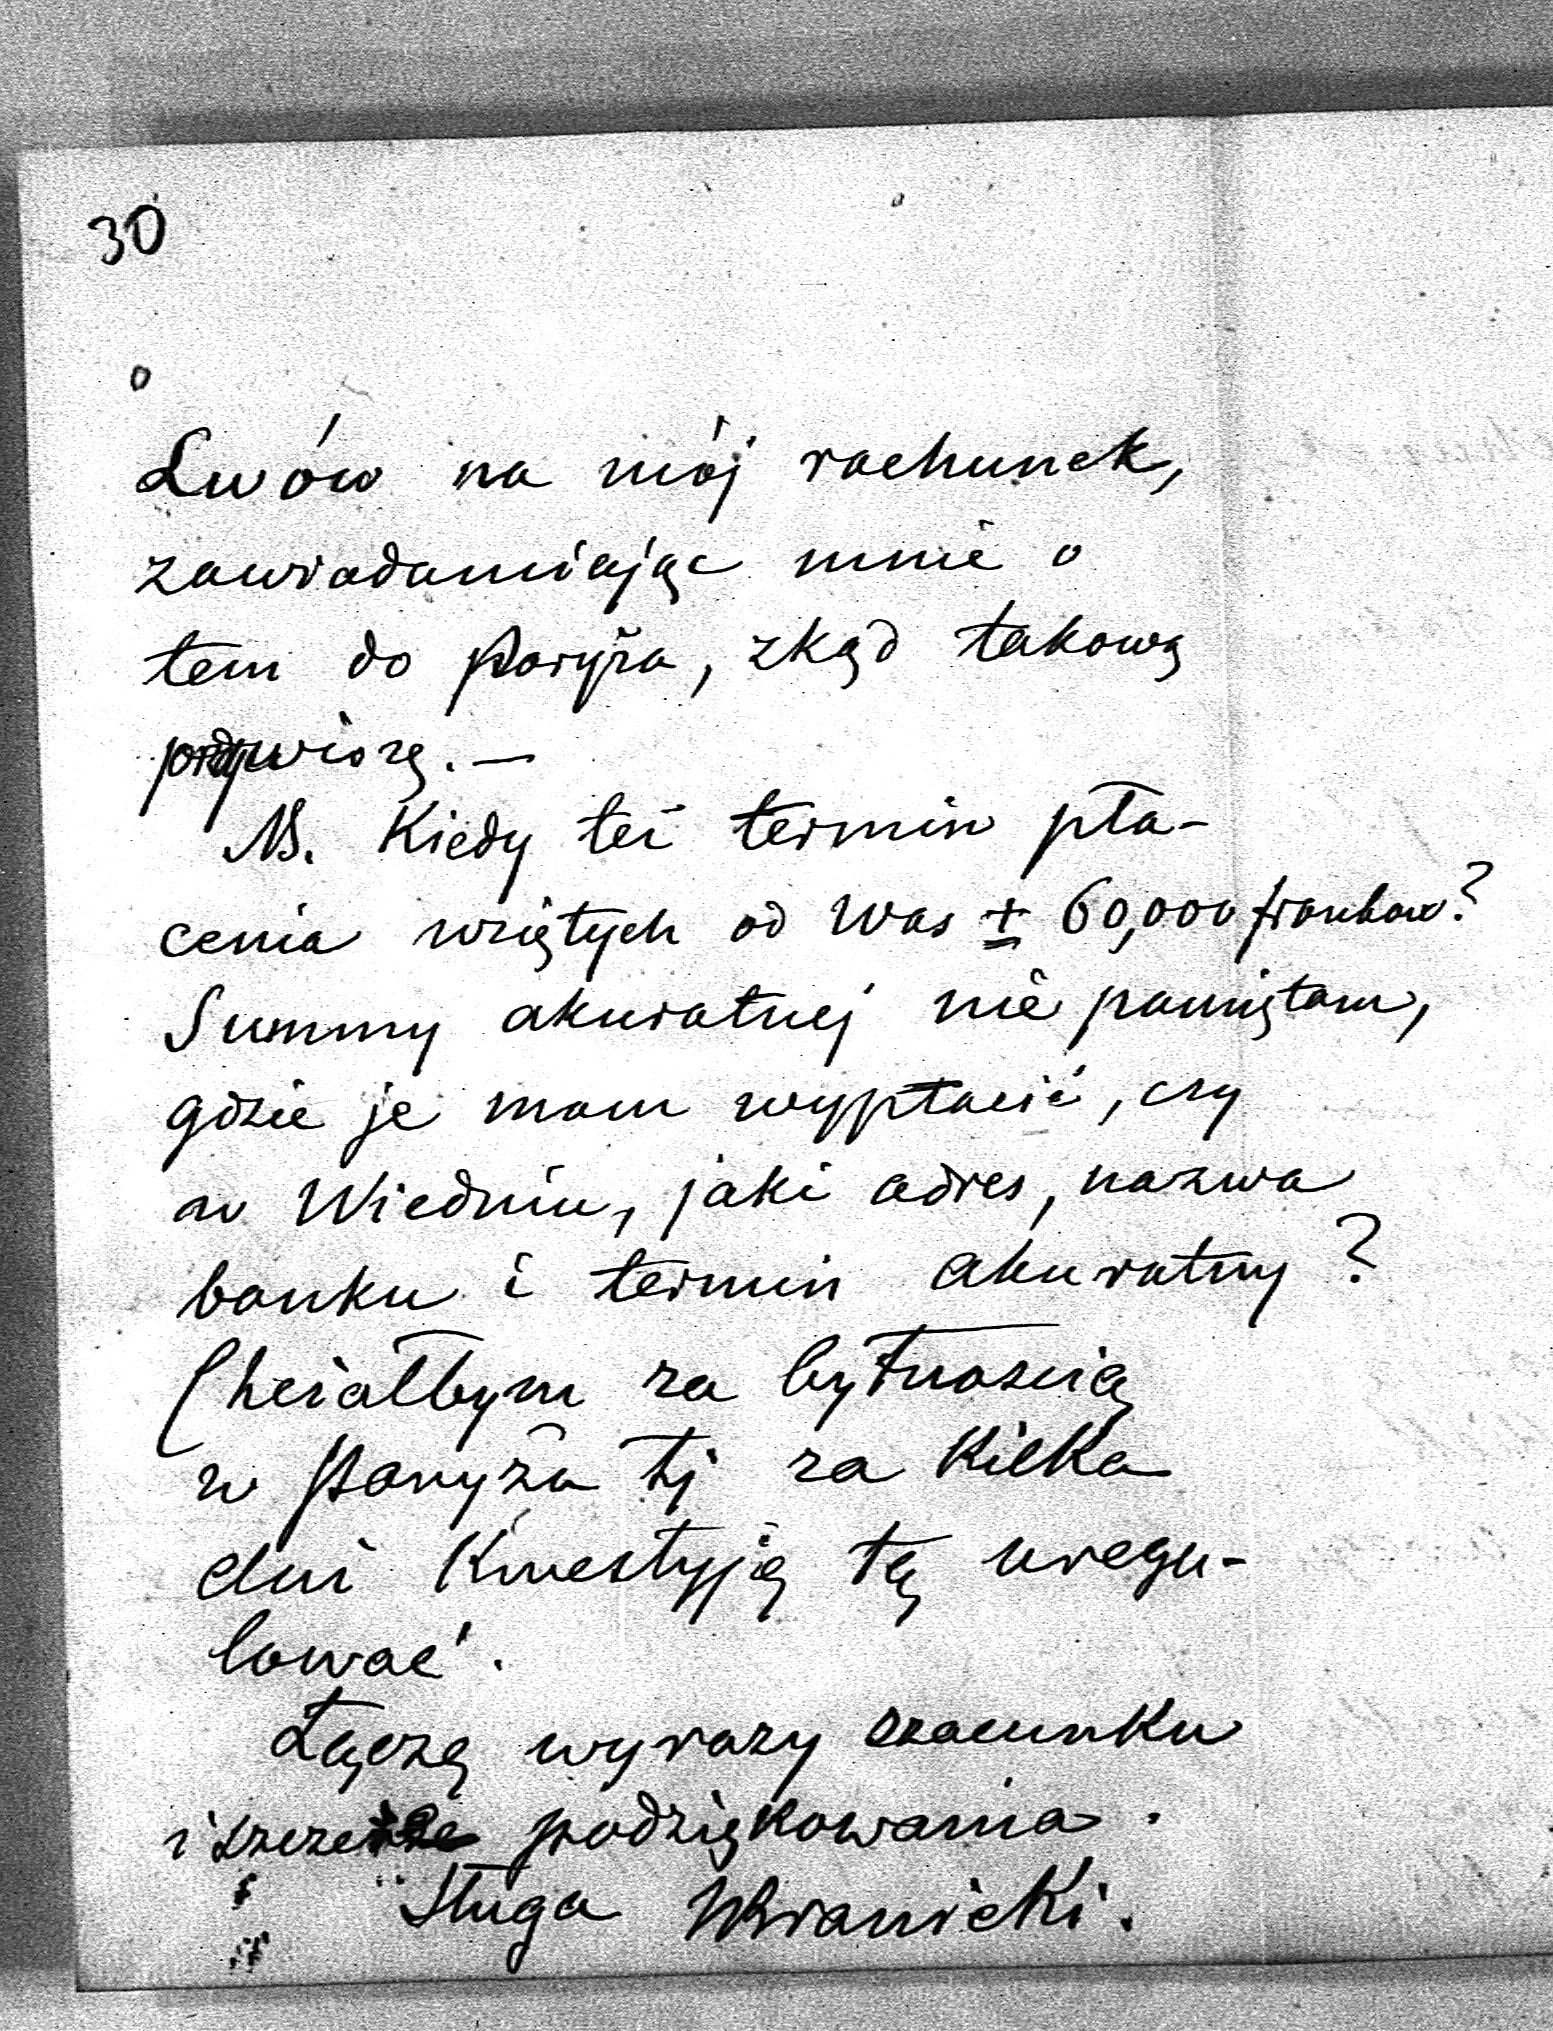 30
Lwów na mój rachunek,
zawiadamiając mnie o
tem do Paryża, zkąd takową
przywiozę. —
NB. Kiedy też termin pła-
cenia wziętych od Was ± 60,000 franków?
Summy akuratnej nie pamiętam,
gdzie je mam wypłacić, czy
w Wiedniu, jaki adres, nazwa
banku i termin akuratny?
Chciałbym za bytnością
w Paryżu tj za kilka
dni kwestyją tę uregu-
lować.
Łączę wyrazy szacunku
i szczere podziękowania.
Sługa WBranicki.